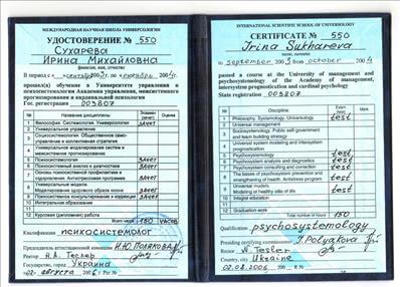 МЕЖДУНАРОДНАЯ НАУЧНАЯ ШКОЛА УНИВЕРСОЛОГИИ
УДОСТОВЕРЕНИЕ № 550
Сухарева
Ирина Михайловна
фамилия, имя, отчество
В период с
прошла(а) обучение в Университете управления и
психосистемологии Академии управления, межсистемного
прогнозирования и кардинальной психологии
Гос. регистрация 003807
№ Название дисциплины Оценка
1 Философия. Системология. Универсология. зачет
2 Универсальное управление
3 Социосистемология. Общественное само-
управление и коллективообразование
4 Универсальное моделирование систем и
межсистемное прогнозирование
5 Психосистемология зачет
6 Психосистемный анализ и диагностика зачет
7 Психосистемное моделирование и коррекция зачет
8 Основы психосистемной профилактики и
оздоровления. Антистрессовая программа зачет
9 Универсальные модели
Моделирование здорового образа жизни зачет
10 Психосистемное консультирование и коррекция зачет
11 Интегральное образование
12 Курсовая (дипломная) работа
Всего часов 180 часов
Квалификация психосистемолог
Председатель аттестационной комиссии И.Ю. Полякова
Ректор Н.А. Теслер
Государство, город Украина
02 августа 2006 г. Рег №
INTERNATIONAL SCIENTIFIC SCHOOL OF UNIVERSOLOGY
CERTIFICATE № 550
Irina Sukhareva
name, surname
to september 2003 from october 2004
passed a course at the University of management and
psychosystemology of the Academy of management,
intersystem prognostication and cardinal psychology
State registration 003807
№ Discipline Exam
1 Philosophy. Systemology. Universology test
2 Universal management
3 Sociosystemology. Public self government
and team building strategy
4 Universal system modeling and intersystem
prognostication
5 Psychosystemology test
6 Psychosystem analysis and diagnostics test
7 Psychosystem modeling and correction test
8 The bases of psychosystem prevention and
strengthening of health. Antistress program test
9 Universal models
Modeling of healthy life of life test
10 Integral education
11
12 Graduation work
Total number of hours 180
Qualification psychosystemology
Presiding certifying commission I. Polyakova
Rector N. Tesler
Country, city Ukraine
02.08.2006